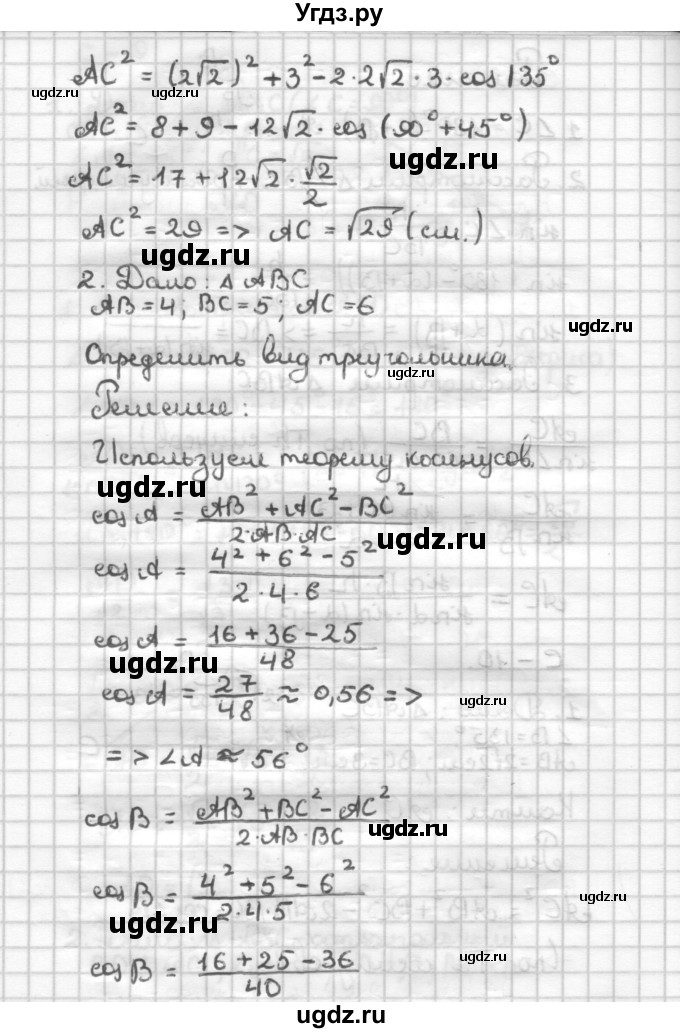 Угдз.ру
AC² = (2√2)² + 3² - 2·2√2·3·cos 135°
ugdz.ru
ugdz.ru
AC² = 8 + 9 - 12√2·cos(90° + 45°)
AC² = 17 + 12√2·√2/2
ugdz.ru
AC² = 29 => AC = √29 (см.)
ugdz.ru
2. Дано: Δ ABC
AB = 4; BC = 5; AC = 6
ugdz.ru
Определить вид треугольника.
ugdz.ru
Решение:
Используем теорему косинусов.
ugdz.ru
cos A = (AB² + AC² - BC²)/(2·AB·AC)
ugdz.ru
cos A = (4² + 6² - 5²)/(2·4·6)
cos A = (16 + 36 - 25)/48
ugdz.ru
cos A = 27/48 ≈ 0,56 =>
ugdz.ru
=> ∠A ≈ 56°
cos B = (AB² + BC² - AC²)/(2·AB·BC)
ugdz.ru
cos B = (4² + 5² - 6²)/(2·4·5)
ugdz.ru
ugdz.ru
cos B = (16 + 25 - 36)/40
ugdz.ru
ugdz.ru